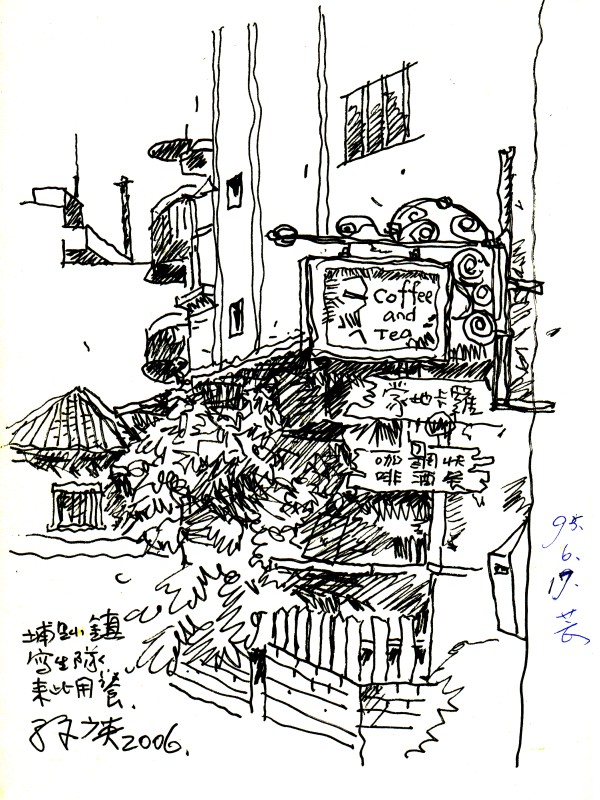 Coffee
and
Tea
家地卡羅
咖啡 調酒 快餐
埔里鎮
寫生隊
來此用餐.
2006.
95.
6.
17.